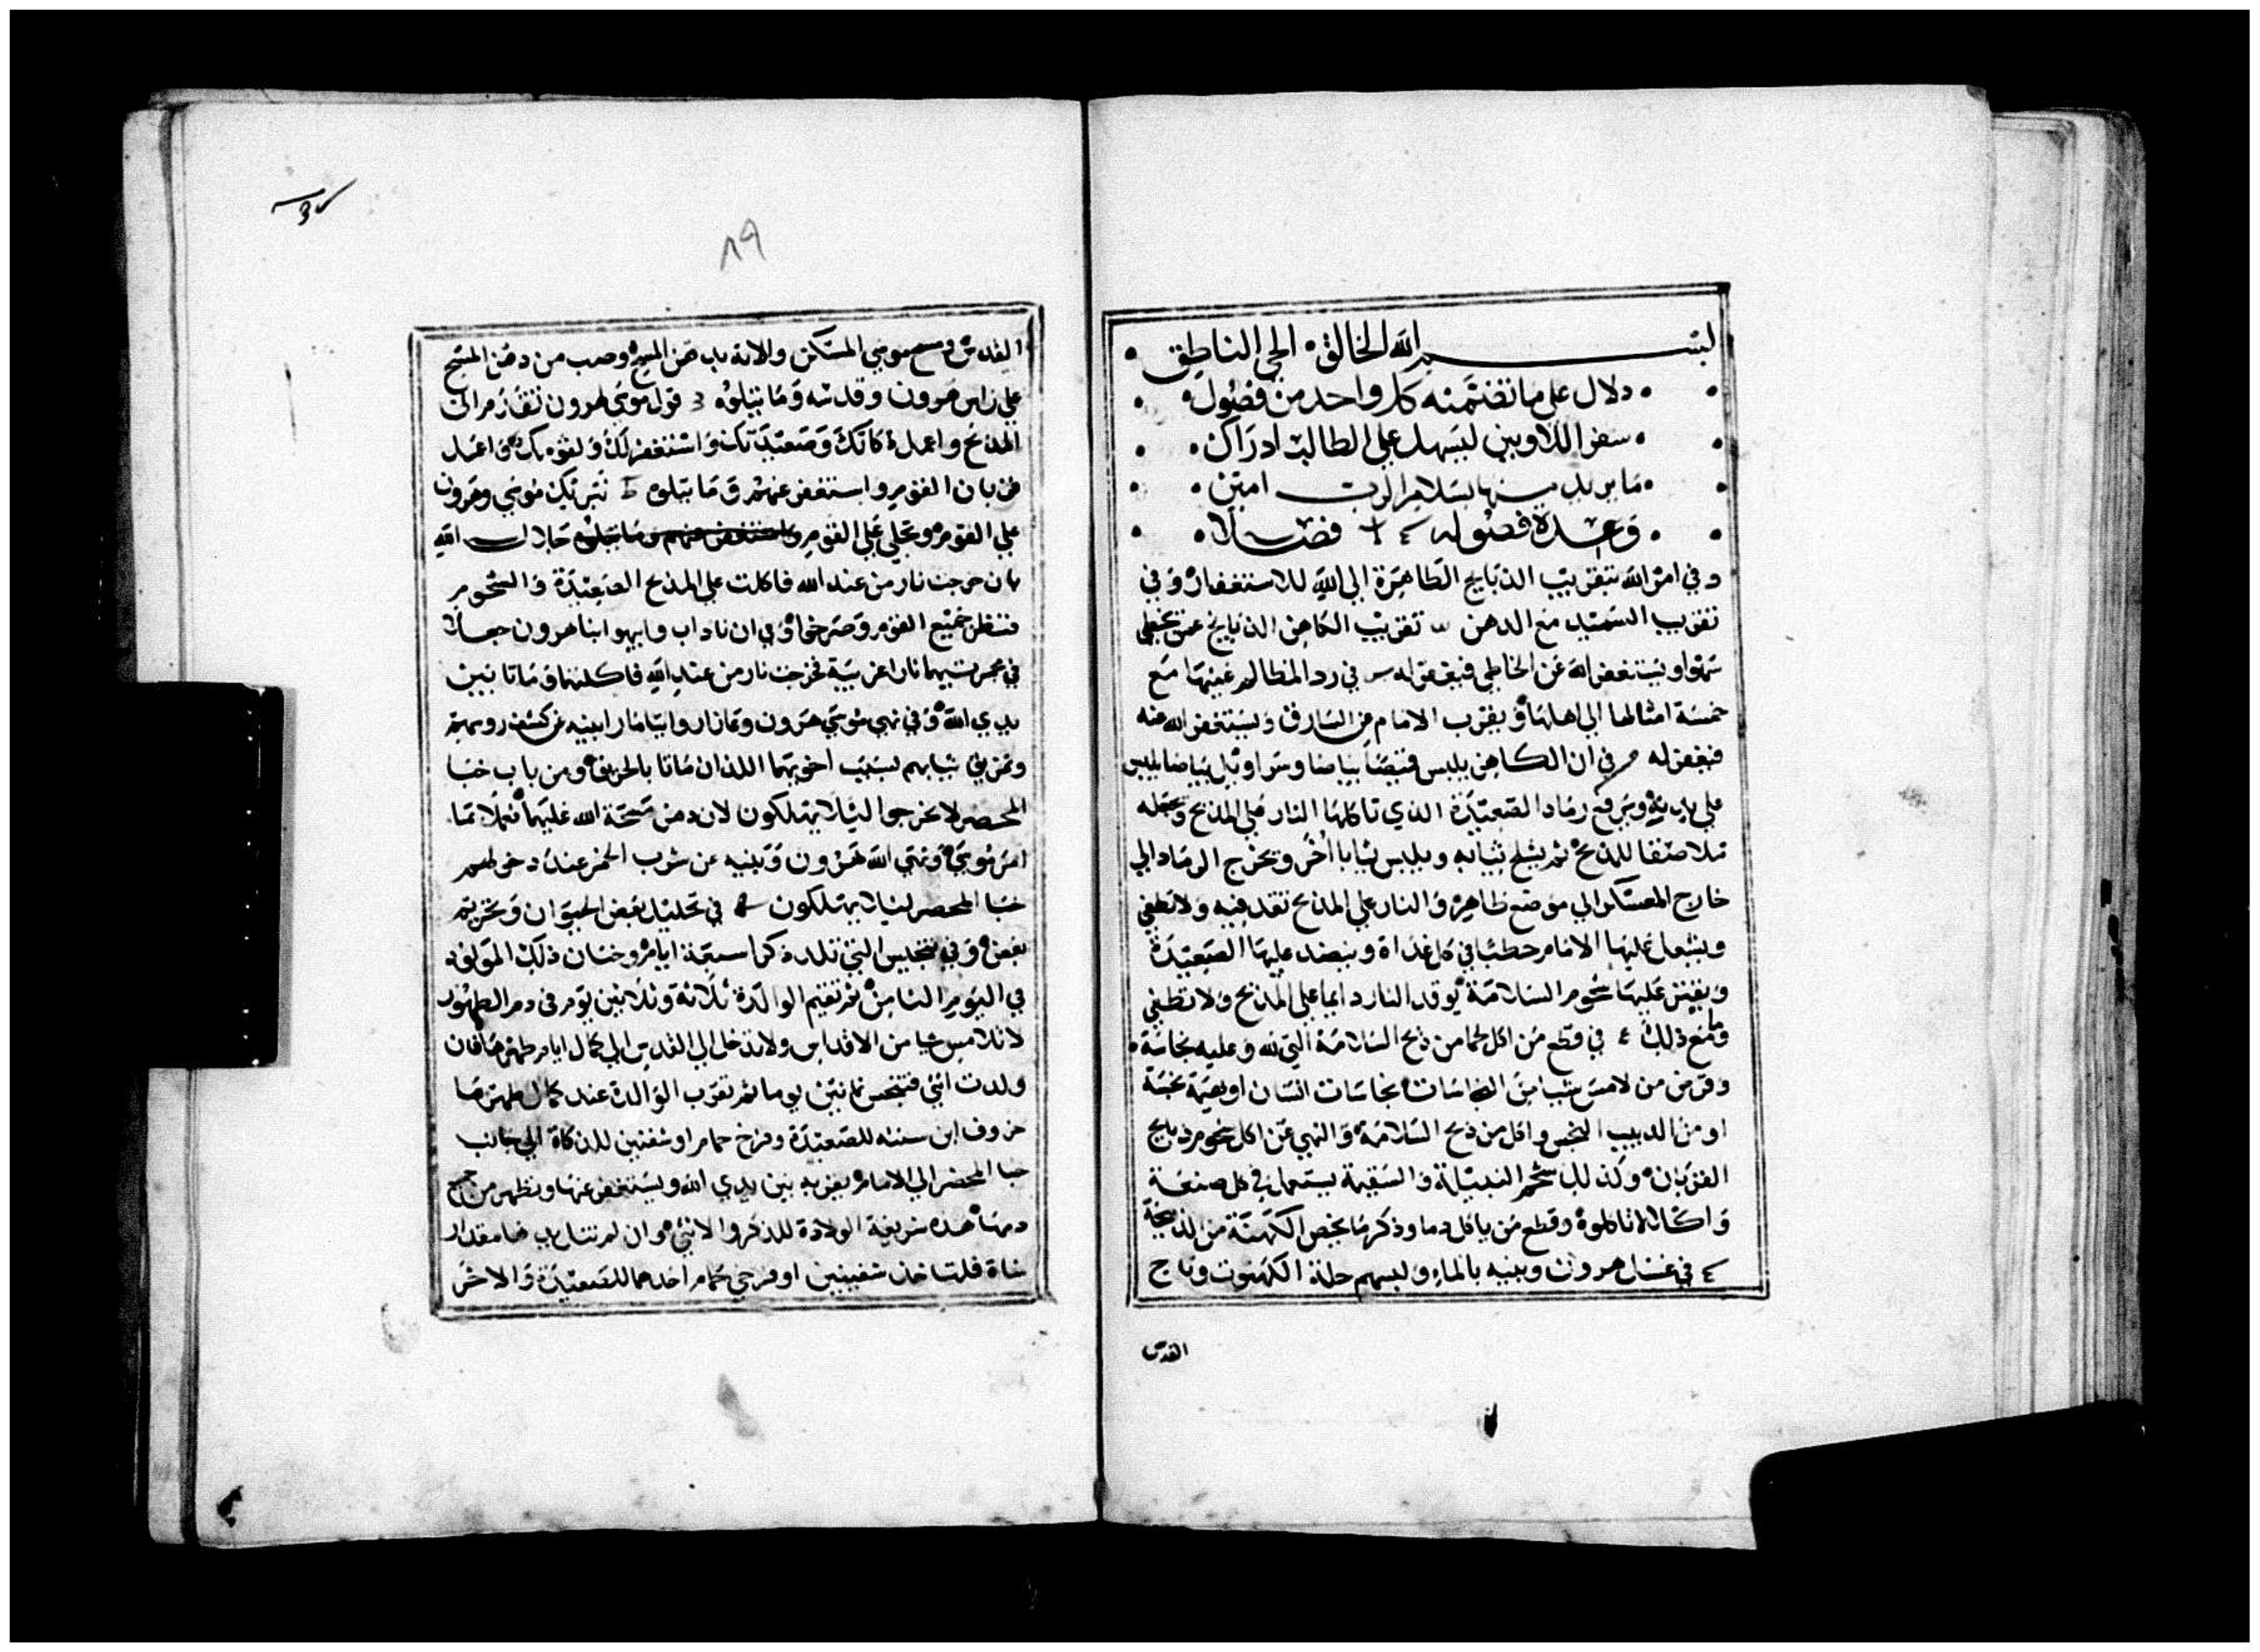 بسم الله الخالق الحي الناطق
دلال على ما تضمنه كل واحد من فصول
سفر اللاويين ليسهل علي الطالب ادراك
ما يريد منها بسلام الرب امين
وعدة فصوله فصلا
وفي امر الله بتقريب الذبايح الطاهرة الي الله للاستغفار وفي
تقريب السميد مع الدهن تقريب الكاهن الذبايح عمن يخطي
سهوا ويستغفر الله عن الخاطي فيغفر له في رد المظالم عينها مع
خمسة امثالها الي اهلها ويقرب الامام عن السارق ويستغفر الله عنه
فيغفر له في ان الكاهن يلبس قميصا بياضا وسراويل بياضا يلبس
علي بدنه ويرفع رماد الصعيدة الذي تاكلها النار علي المذبح ويجعله
ملاصقا للمذبح ثم يشلح ثيابه ويلبس ثيابا اخر ويخرج الرماد الي
خارج المعسكر الي موضع طاهر والنار علي المذبح تقد فيه ولا تطفي
ويشعل عليها الامام حطبا في كل غداة وينضد عليها الصعيدة
ويقتر عليها شحوم السلامة يوقد النار دايما علي المذبح ولا تطفي
وما مع ذلك في قطع من اكل لحما من ذبح السلامة التي لله وعليه نجاسة
وفرض من لامس شيا من النجاسات نجاسات انسان او بهيمة نجسة
او من الدبيب النجس واكل من ذبح السلامة والنهي عن اكل شحوم ذبايح
القربان وكذلك شحم النبيلة والسقيمة يستعمل في كل صنعة
واكلا لا تاكلوه وقطع من ياكل دما وذكر ما يخص الكهنة من الذبيحة
في غسل هرون وبنيه بالماء ولبسهم حلة الكهنوت وتاج
القدس
٨٩
القدس ومسح موسي المسكن والانة بدهن المسح وصب من دهن المسح
علي راس هرون وقدسه وما يتلوه قول موسي لهرون تقدم الي
المذبح واعمل ذكاتك وصعيدتك واستغفر لك ولقومك واعمل
قربان القوم واستغفر عنهم وما يتلوه تبريك موسي وهرون
علي القوم وتجلي علي القوم جلال الله
بان خرجت نار من عند الله فاكلت علي المذبح الصعيدة والشحوم
فنظر جميع القوم وصرخوا وفي ان ناداب وابيهو ابنا هرون جعلا
في مجمرتيهما نارا غريبة فخرجت نار من عند الله فاكلتهما وماتا بين
يدي الله وفي نهي موسي هرون وتمانار وايتامار ابنيه عن كشف روسهم
وتمزيق ثيابهم بسبب اخويهما اللذان ماتا بالحريق ومن باب خبا
المحضر لا يخرجوا ليلا يهلكون لان دهن مسحة الله عليهما فعلا بما
امر موسي ونهي الله هرون وبنيه عن شرب الخمر عند دخولهم
خبا المحضر ليلا يهلكون في تحليل بعض الحيوان وتحريم
بعض وفي تنجيس التي تلد ذكرا سبعة ايام وختان ذلك المولود
في اليوم الثامن ثم تقيم الوالدة ثلاثة وثلاثين يوم في دم الطهور
لا تلامس شيا من الاقداس ولا تدخل الي القدس الي كمال ايام طهرها فان
ولدت انثي فتنجس ثمانين يوما ثم تقرب الوالدة عند كمال طهرها
خروف ابن سنته للصعيدة وفرخ حمام او شفنين للذكاة الي باب
خبا المحضر الي الامام يقربه بين يدي الله ويستغفر عنها وتطهر من
دمها هذه شريعة الولادة للذكر والانثي وان لم تنل يدها مقدار
شاة فلتاخذ شفنينين او فرخي حمام احدهما للصعيدة والاخر